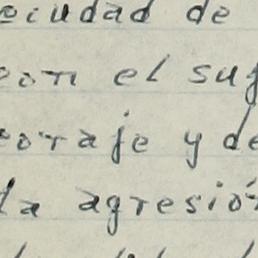 ciudad de
con el suf
coraje y de
la agresión